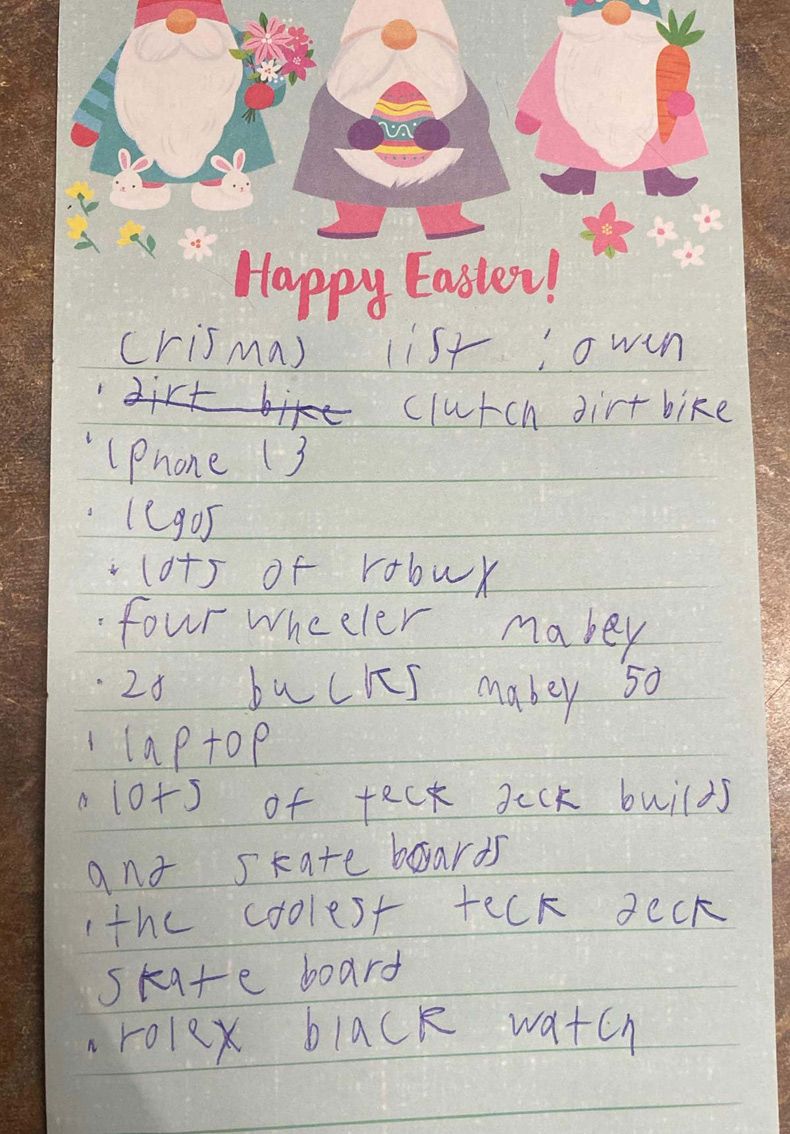 Happy Easter!
crismas list : owen
· dirt bike clutch dirt bike
· iphone 13
· legos
· lots of robux
· four wheeler mabey
· 20 bucks mabey 50
· laptop
· lots of teck deck builds
and skate boards
· the coolest teck deck
skate board
· rolex black watch